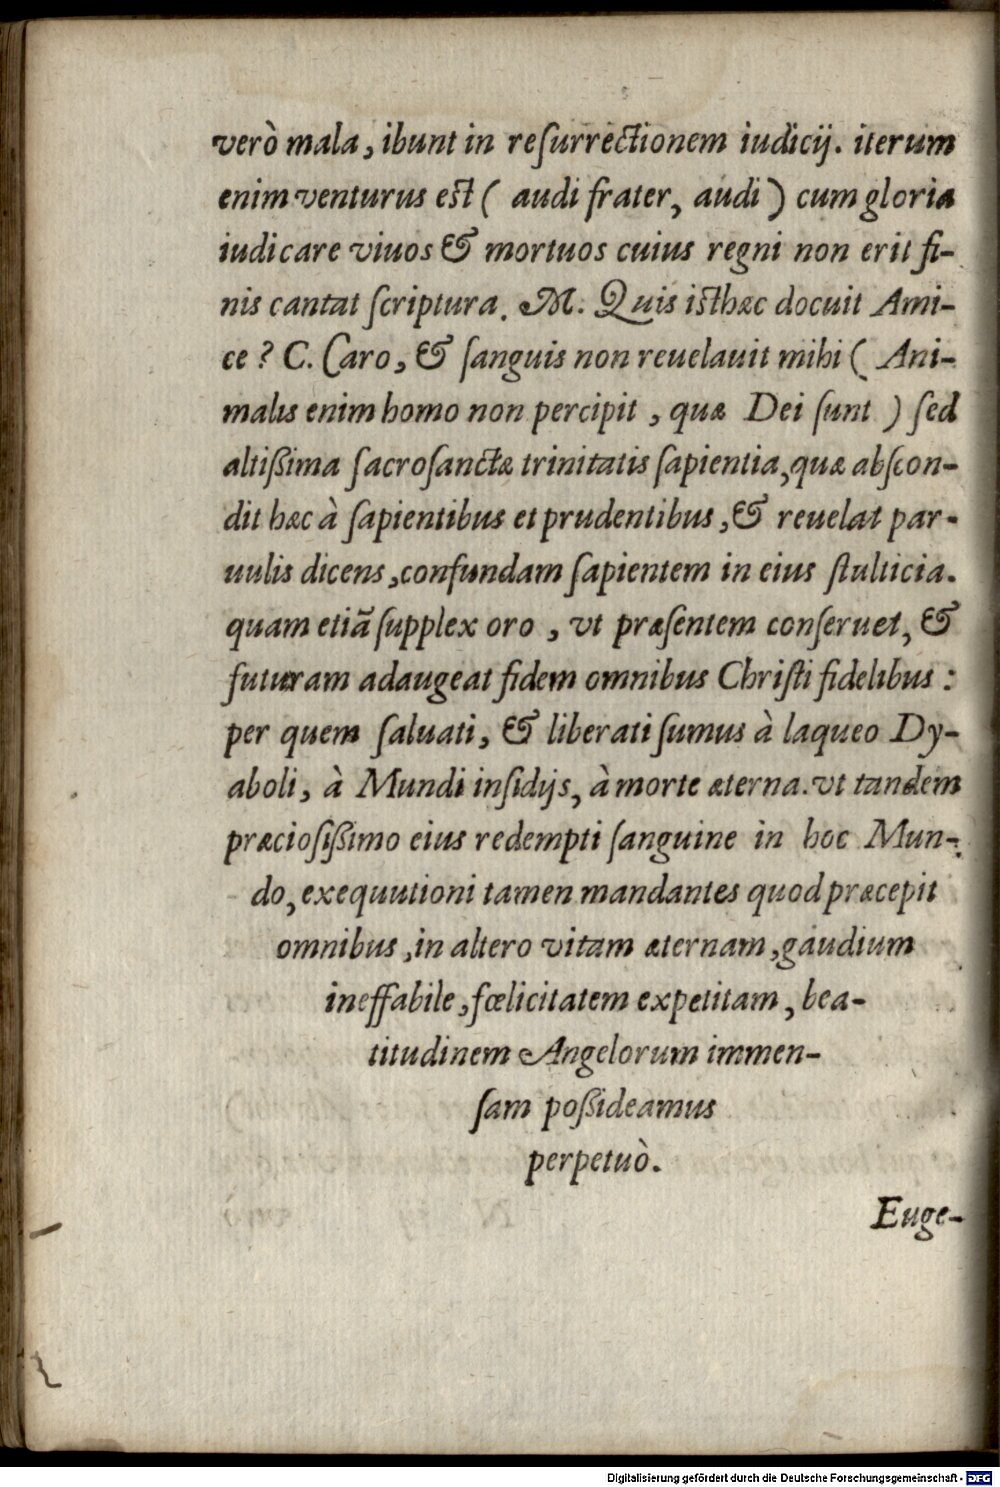 verò mala, ibunt in reſurrectionem iudicij. iterum
enim venturus est ( audi frater, audi ) cum gloria
iudicare viuos & mortuos cuius regni non erit fi-
nis cantat ſcriptura. M. Quis isthæc docuit Ami-
ce ? C. Caro, & ſanguis non reuelauit mihi ( Ani-
malis enim homo non percipit , quæ Dei ſunt ) ſed
altiſsima ſacroſanctæ trinitatis ſapientia, quæ abſcon-
dit hæc à ſapientibus et prudentibus, & reuelat par-
uulis dicens, confundam ſapientem in eius ſtulticia.
quam etiã ſupplex oro , vt præſentem conſeruet, &
futuram adaugeat fidem omnibus Chriſti fidelibus :
per quem ſaluati, & liberati ſumus à laqueo Dy-
aboli, à Mundi inſidijs, à morte æterna. vt tandem
præcioſiſsimo eius redempti ſanguine in hoc Mun-
do, exequutioni tamen mandantes quod præcepit
omnibus, in altero vitam æternam, gaudium
ineffabile, fœlicitatem expetitam, bea-
titudinem Angelorum immen-
ſam poſsideamus
perpetuò.
Euge-
Digitalisierung gefördert durch die Deutsche Forschungsgemeinschaft - DFG